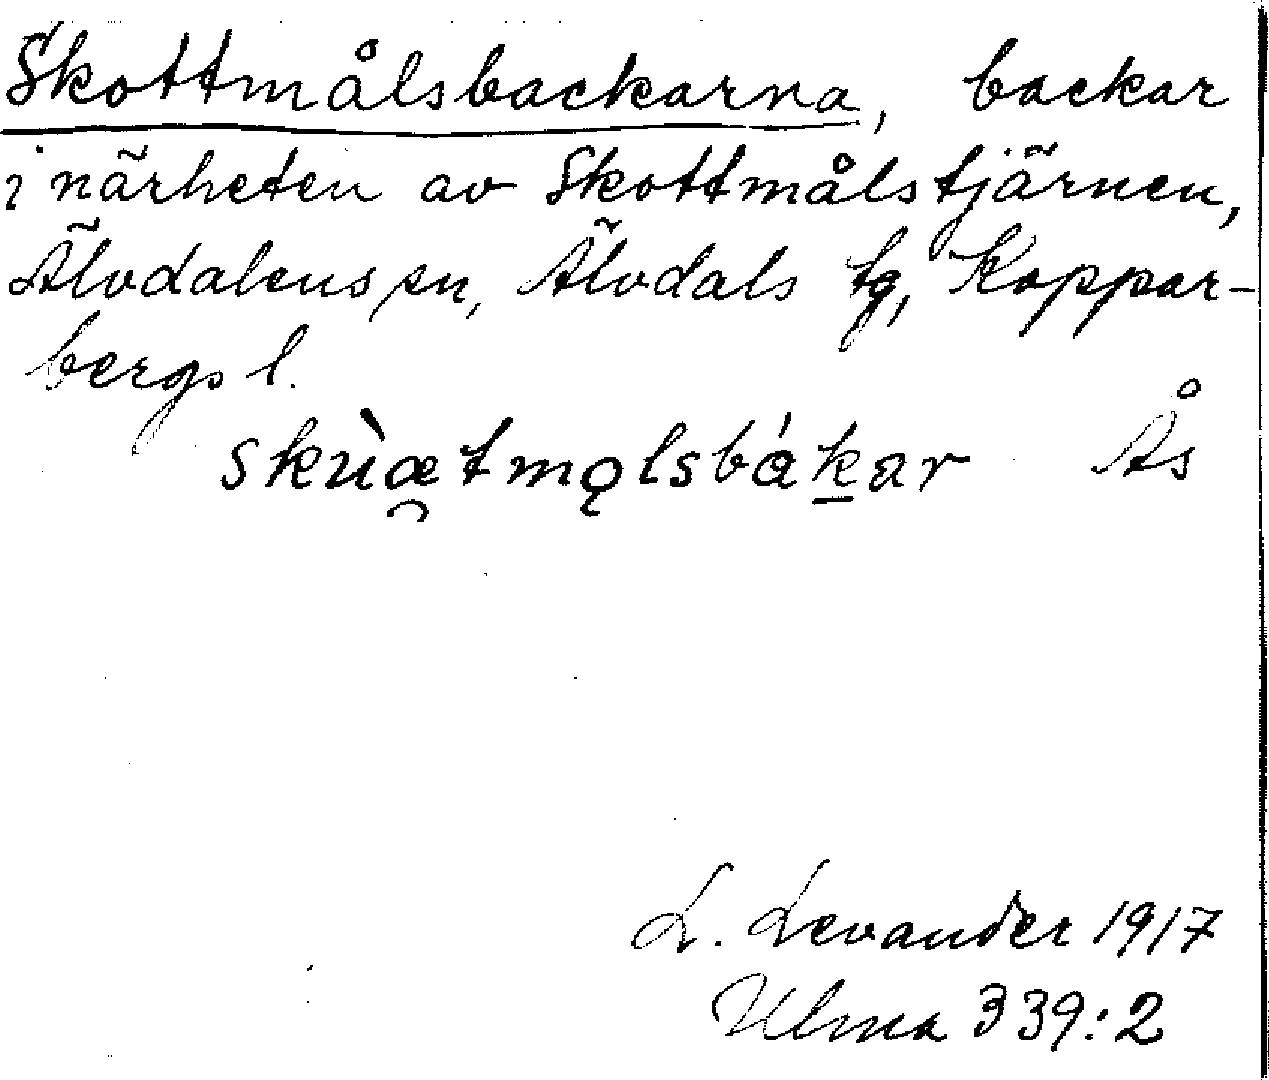 Skottmålsbackarna, backar
i närheten av Skottmålstjärnen,
Älvdalens sn, Älvdals tg, Koppar-
bergs l.
skùæ̯tmǫlsbákar Ås
L. Levander 1917
Ulma 339:2